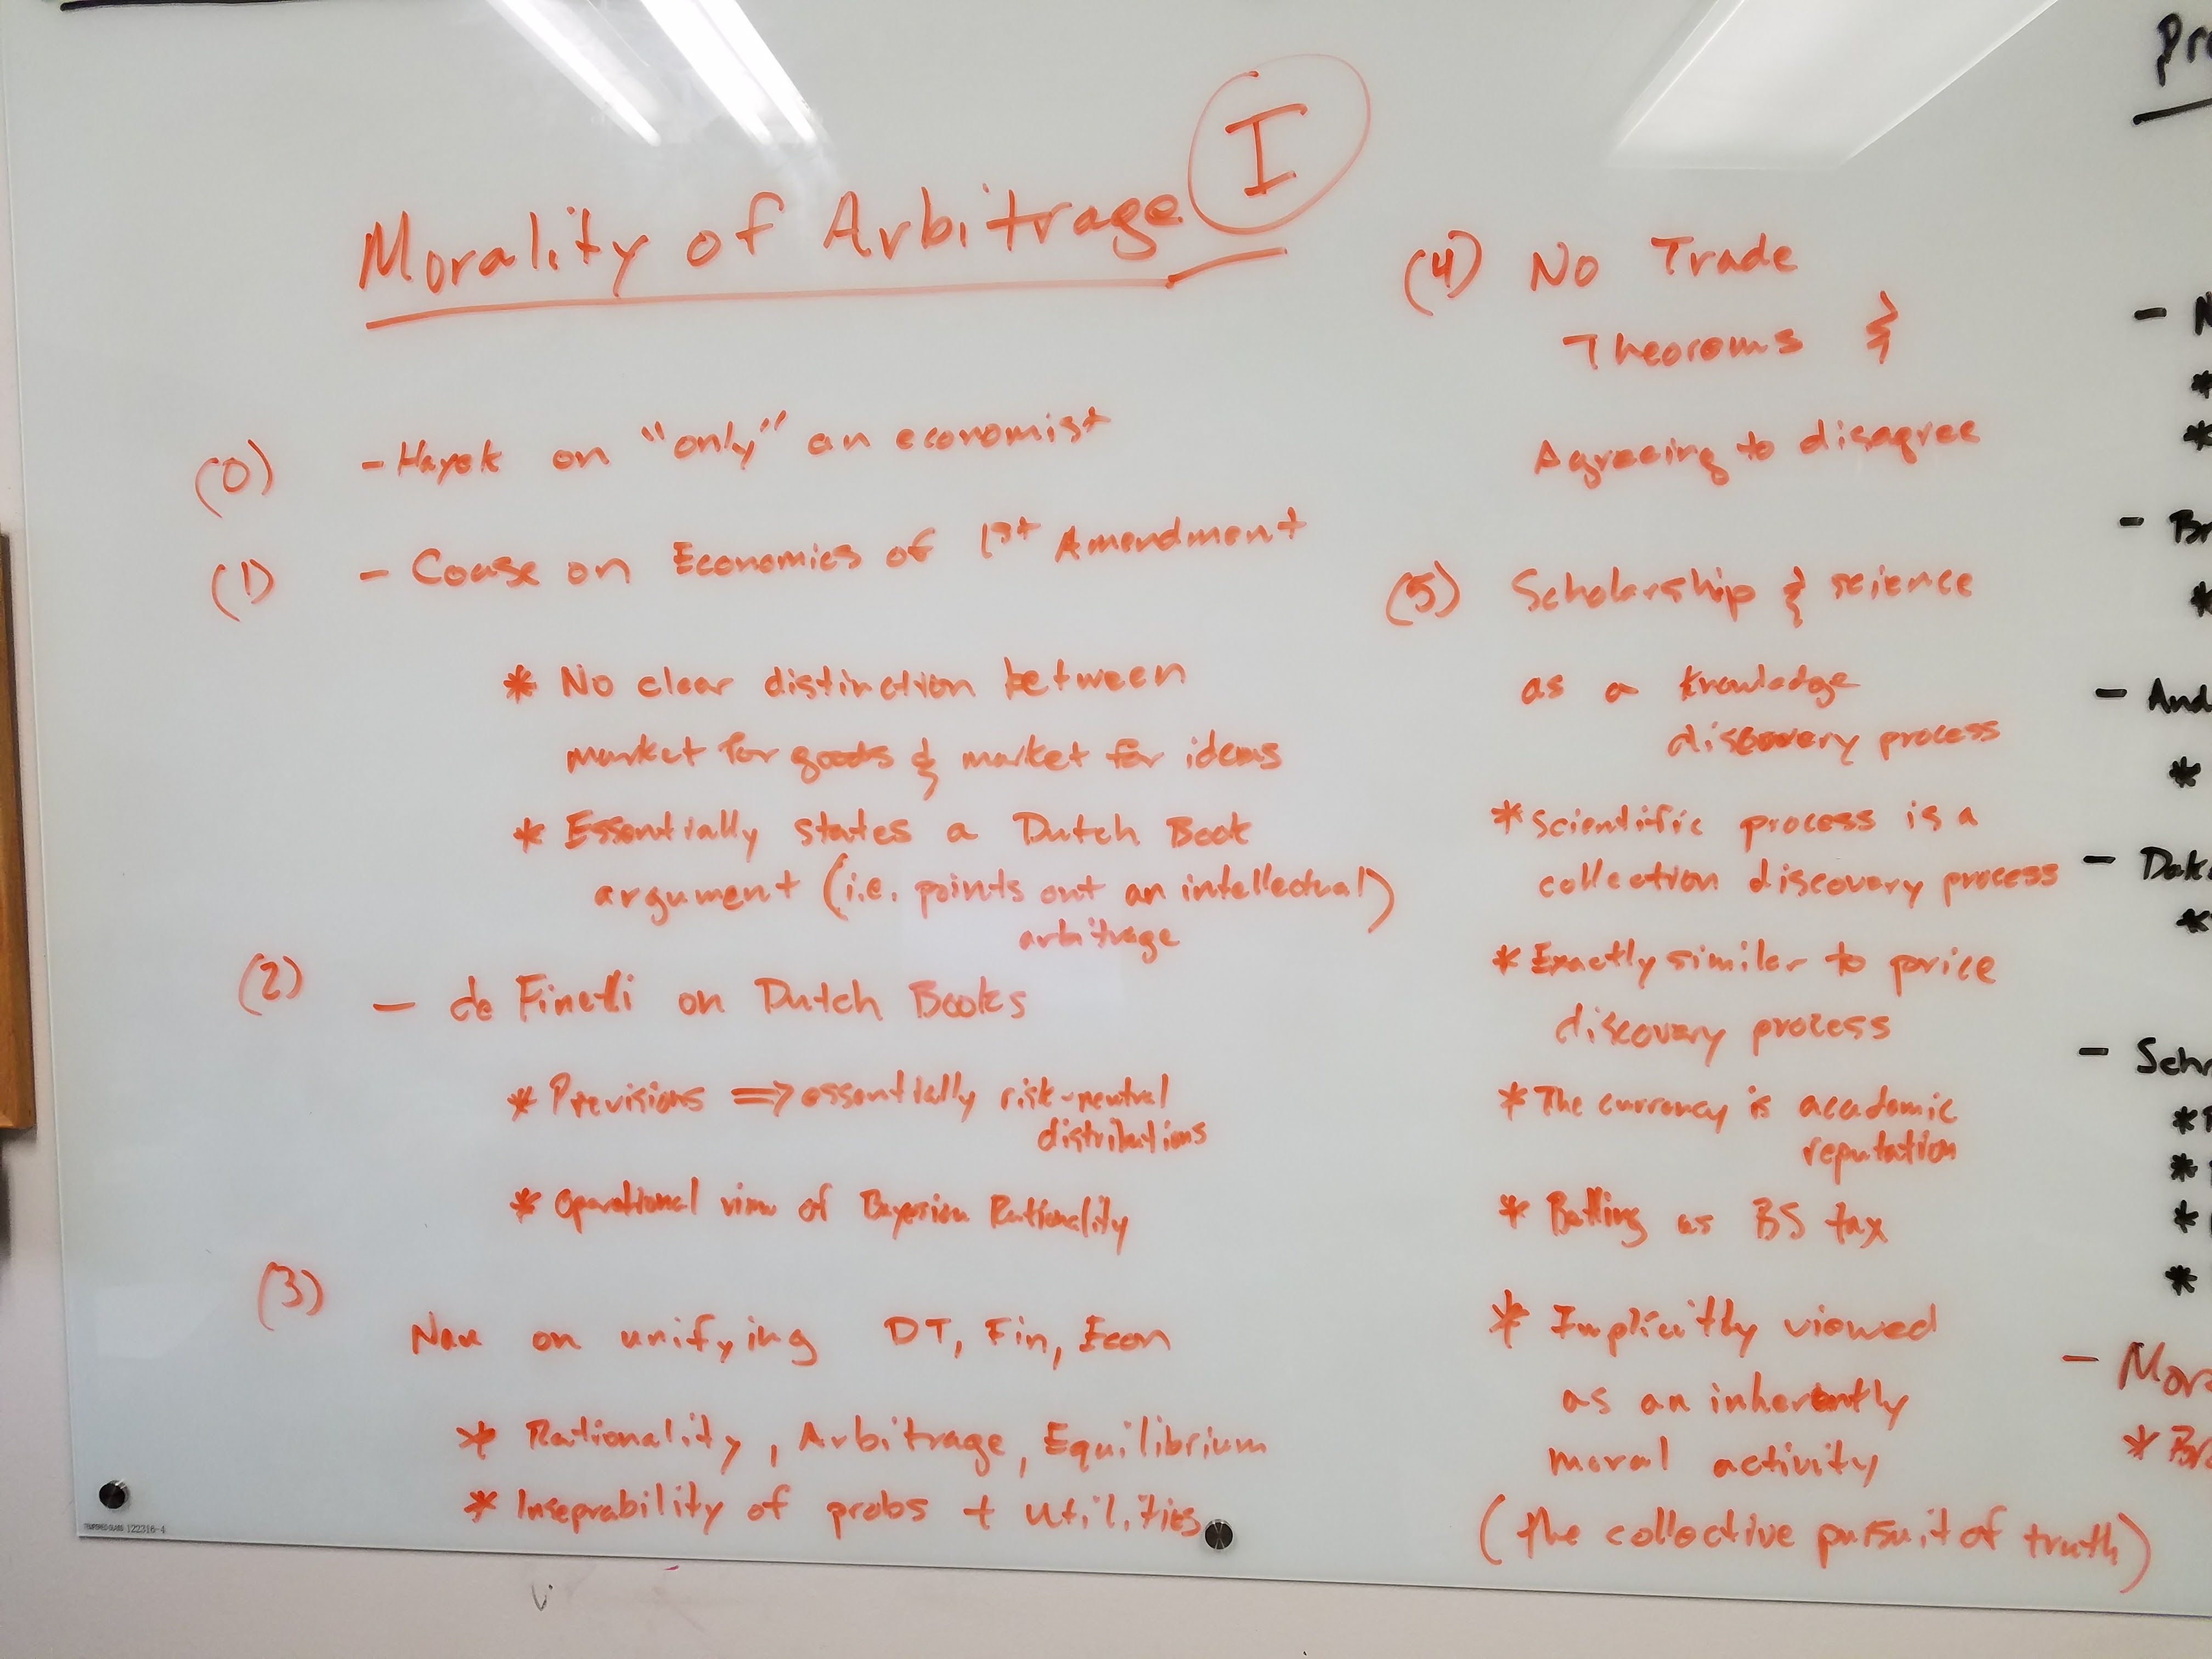 Morality of Arbitrage I
(0) - Hayek on "only" an economist
(1) - Coase on Economics of 1st Amendment
* No clear distinction between
market for goods & market for ideas
* Essentially states a Dutch Book
argument (i.e. points out an intellectual)
arbitrage
(2) - de Finetti on Dutch Books
* Previsions ⇒ essentially risk-neutral
distributions
* Operational view of Bayesian Rationality
(3)
Nau on unifying DT, Fin, Econ
* Rationality, Arbitrage, Equilibrium
* Inseprability of probs + utilities
TEMPERED GLASS 122316-4
(4) No Trade
Theorems &
Agreeing to disagree
(5) Scholarship & science
as a knowledge
discovery process
* Scientific process is a
collection discovery process
* Exactly similar to price
discovery process
* The currency is academic
reputation
* Betting as BS tax
* Implicitly viewed
as an inherently
moral activity
(the collective pursuit of truth)
- N
*
*
- Br
*
- And
*
*
- Sch
*
*
*
*
- Mor
* Br